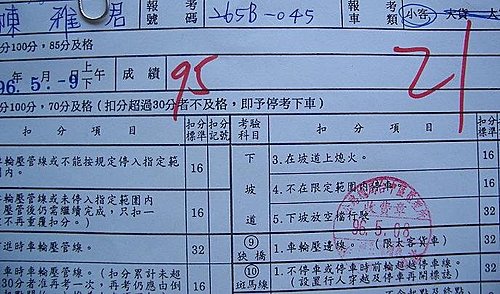 陳雅君 報號 考碼 265B-045 報車 考類 小客 大貨 大
分100分，85分及格
96.5.-9 上下午 成績 95 21
分100分，70分及格（扣分超過30分者不及格，即予停考下車）
扣分項目 扣分標準 扣分記號 考驗科目 扣分項目 扣分標準
車輪壓管線或不能按規定停入指定範圍內。 16 下坡道 3.在坡道上熄火。 16
4.不在限定範圍內停車。 16
輪壓管線或未停入指定範圍內
壓管後仍需繼續完成，只扣一
不再重複扣分。） 16 5.下坡放空檔行駛 32
進時車輪壓管線。 32 ⑨狹橋 1.車輪壓邊線。（限大客貨車） 32
車時車輪壓管線。（扣分累計未超
30分者准再考一次，再考仍應由倒 16 ⑩斑馬線 1.不停車或停車時前輪超越停車線。
（設置行人穿越及停車再開標誌） 32
收費章
96.5.08